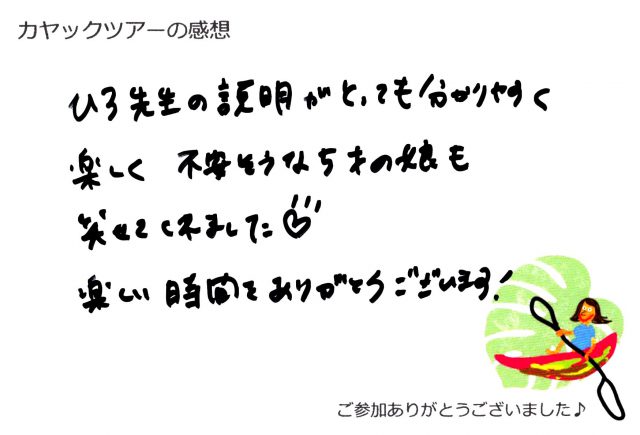 カヤックツアーの感想
ひろ先生の説明がとっても分かりやすく
楽しく 不安そうな5才の娘も
笑せてくれました♡
楽しい時間をありがとうございます!
ご参加ありがとうございました♪